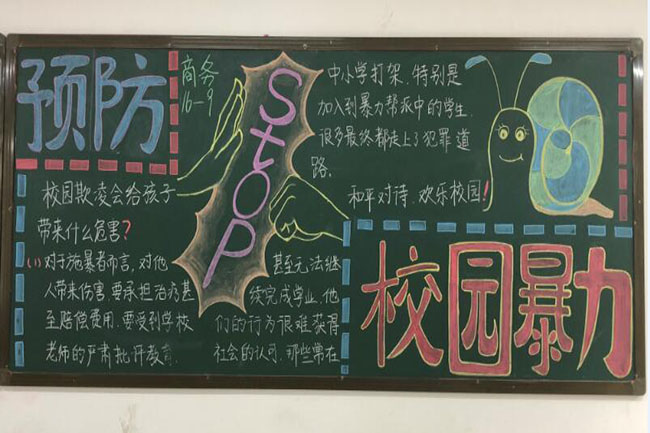 预防
商务
16-9
STOP
校园欺凌会给孩子
带来什么危害?
(1)对于施暴者而言,对他
人带来伤害,要承担治疗甚
至赔偿费用.要受到学校
老师的严肃批评教育.
甚至无法继
续完成学业.他
们的行为很难获得
社会的认可.那些常在
中小学打架.特别是
加入到暴力帮派中的学生.
很多最终都走上了犯罪道
路.
和平对待.欢乐校园!
校园暴力